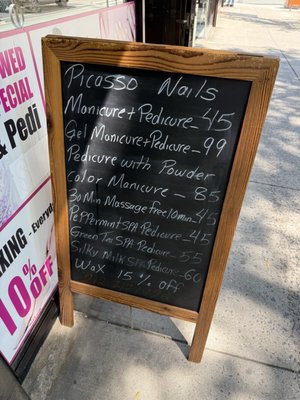 Picasso Nails
Manicure+Pedicure-45
Gel Manicure+Pedicure-99
Pedicure with Powder
Color Manicure-85
30 Min Massage free 10min-45
Peppermint SPA Pedicure-45
Green Tea SPA Pedicure-55
Silky Milk SPA Pedicure-60
Wax 15% off
SPECIAL
& Pedi
10% OFF